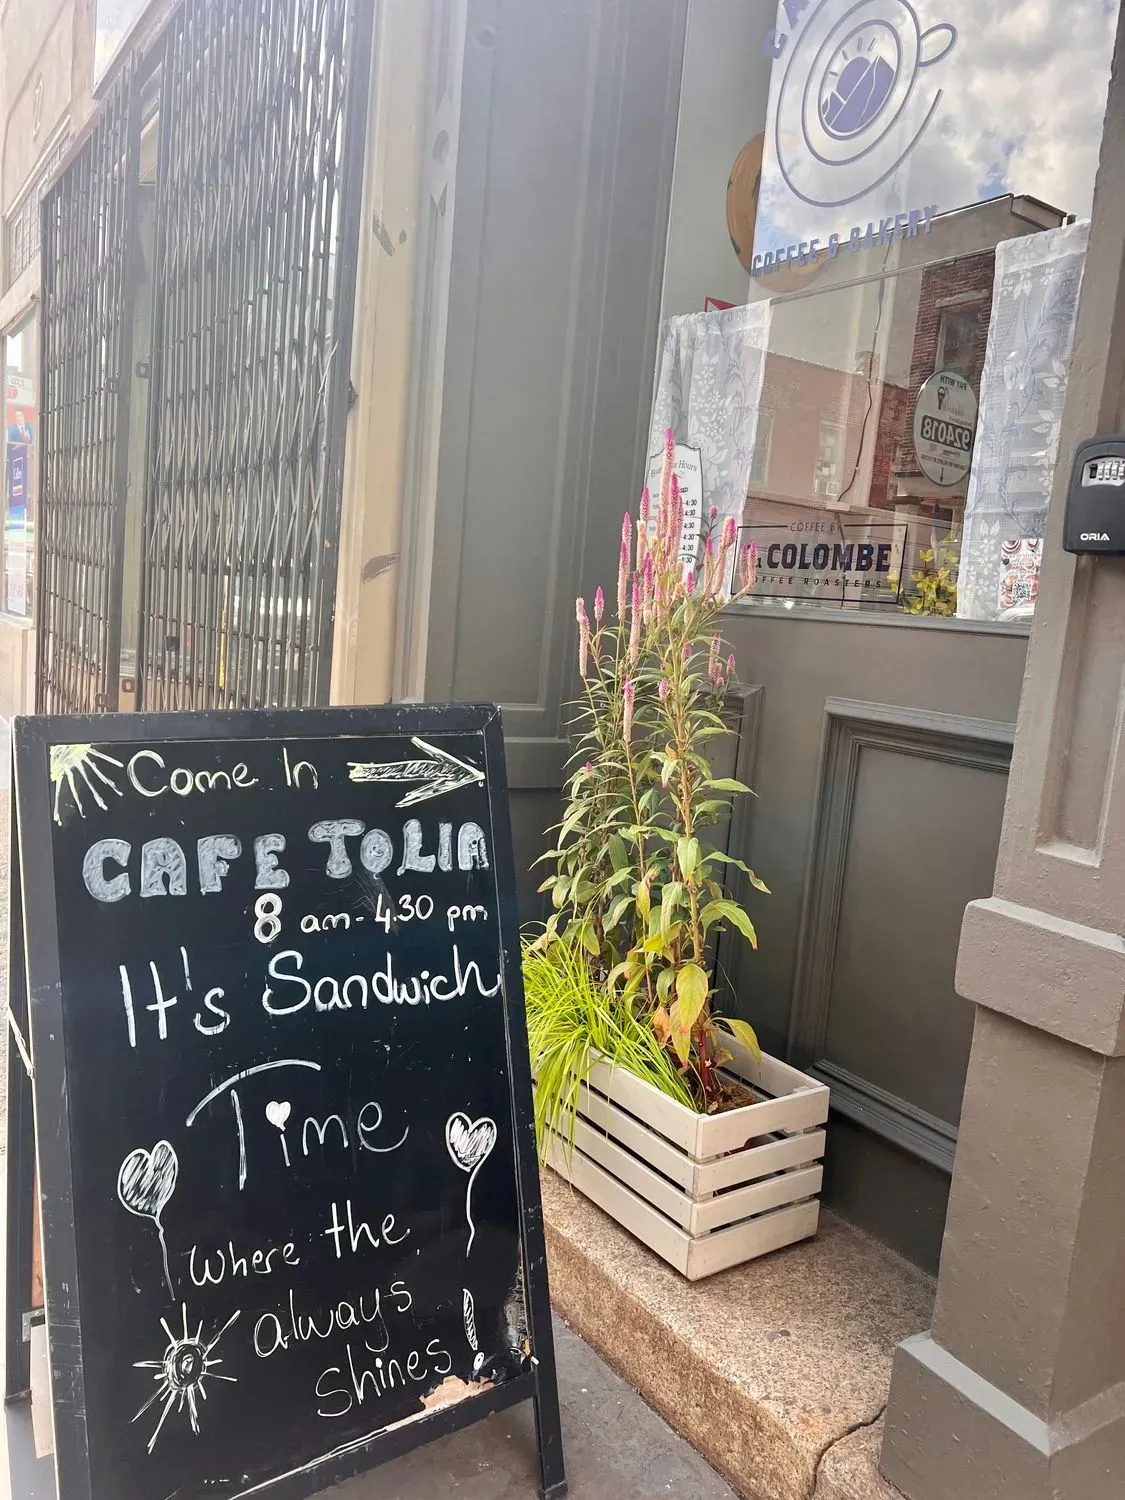 Come In
CAFE TOLIA
8 am - 4.30 pm
It's Sandwich
Time
Where the
always
shines!
COFFEE & BAKERY
Hours
4:30
4:30
4:30
4:30
PAY WITH
924018
COFFEE BY
La COLOMBE
COFFEE ROASTERS
ORIA